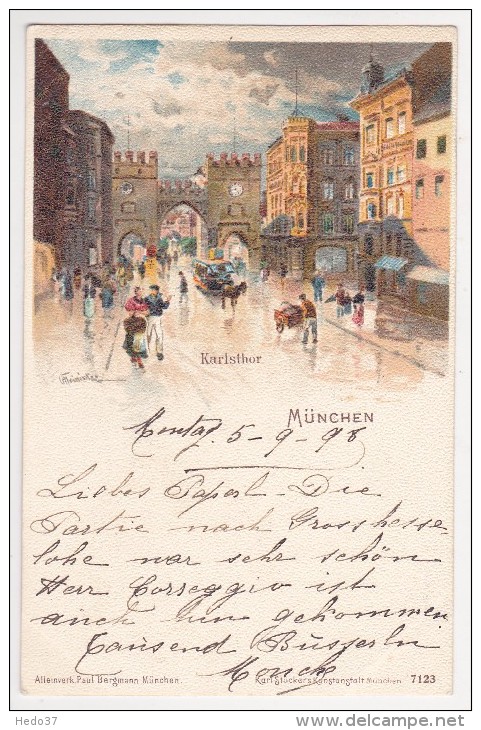 Karlsthor
MÜNCHEN
Montag 5-9-98
Liebes Paperl - Die
Partie nach Grosshesse-
lohe war sehr schön
Herr Correggio ist
auch hin gekommen
Tausend Busserln
Alleinverk. Paul Bergmann München.
Karl Stücker's Kunstanstalt München 7123
Hedo37
www.delcampe.net